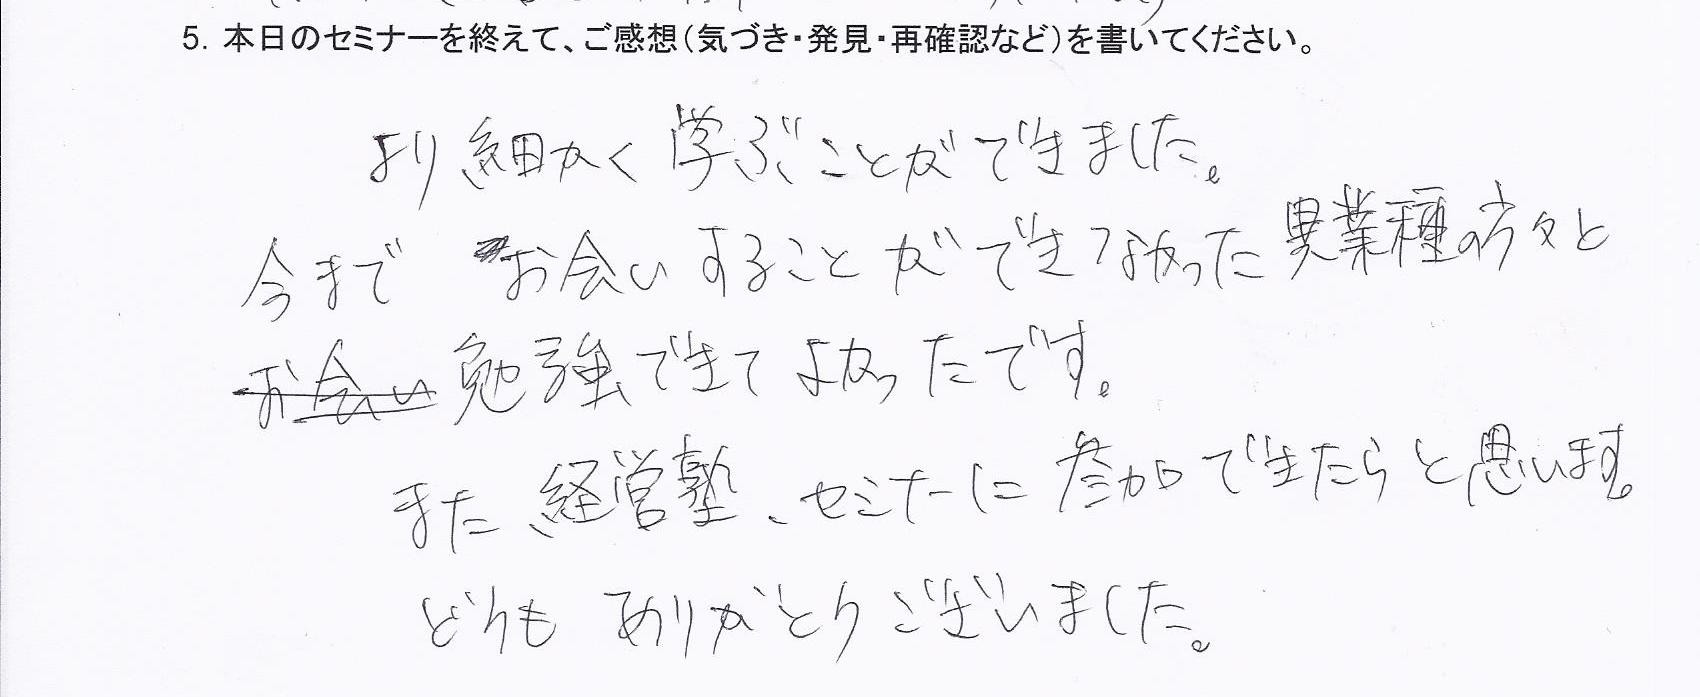 5. 本日のセミナーを終えて、ご感想(気づき・発見・再確認など)を書いてください。
より細かく学ぶことができました。
今まで お会いすることができなかった異業種の方々と
お会い 勉強できてよかったです。
また経営塾、セミナーに参加できたらと思います。
どうもありがとうございました。